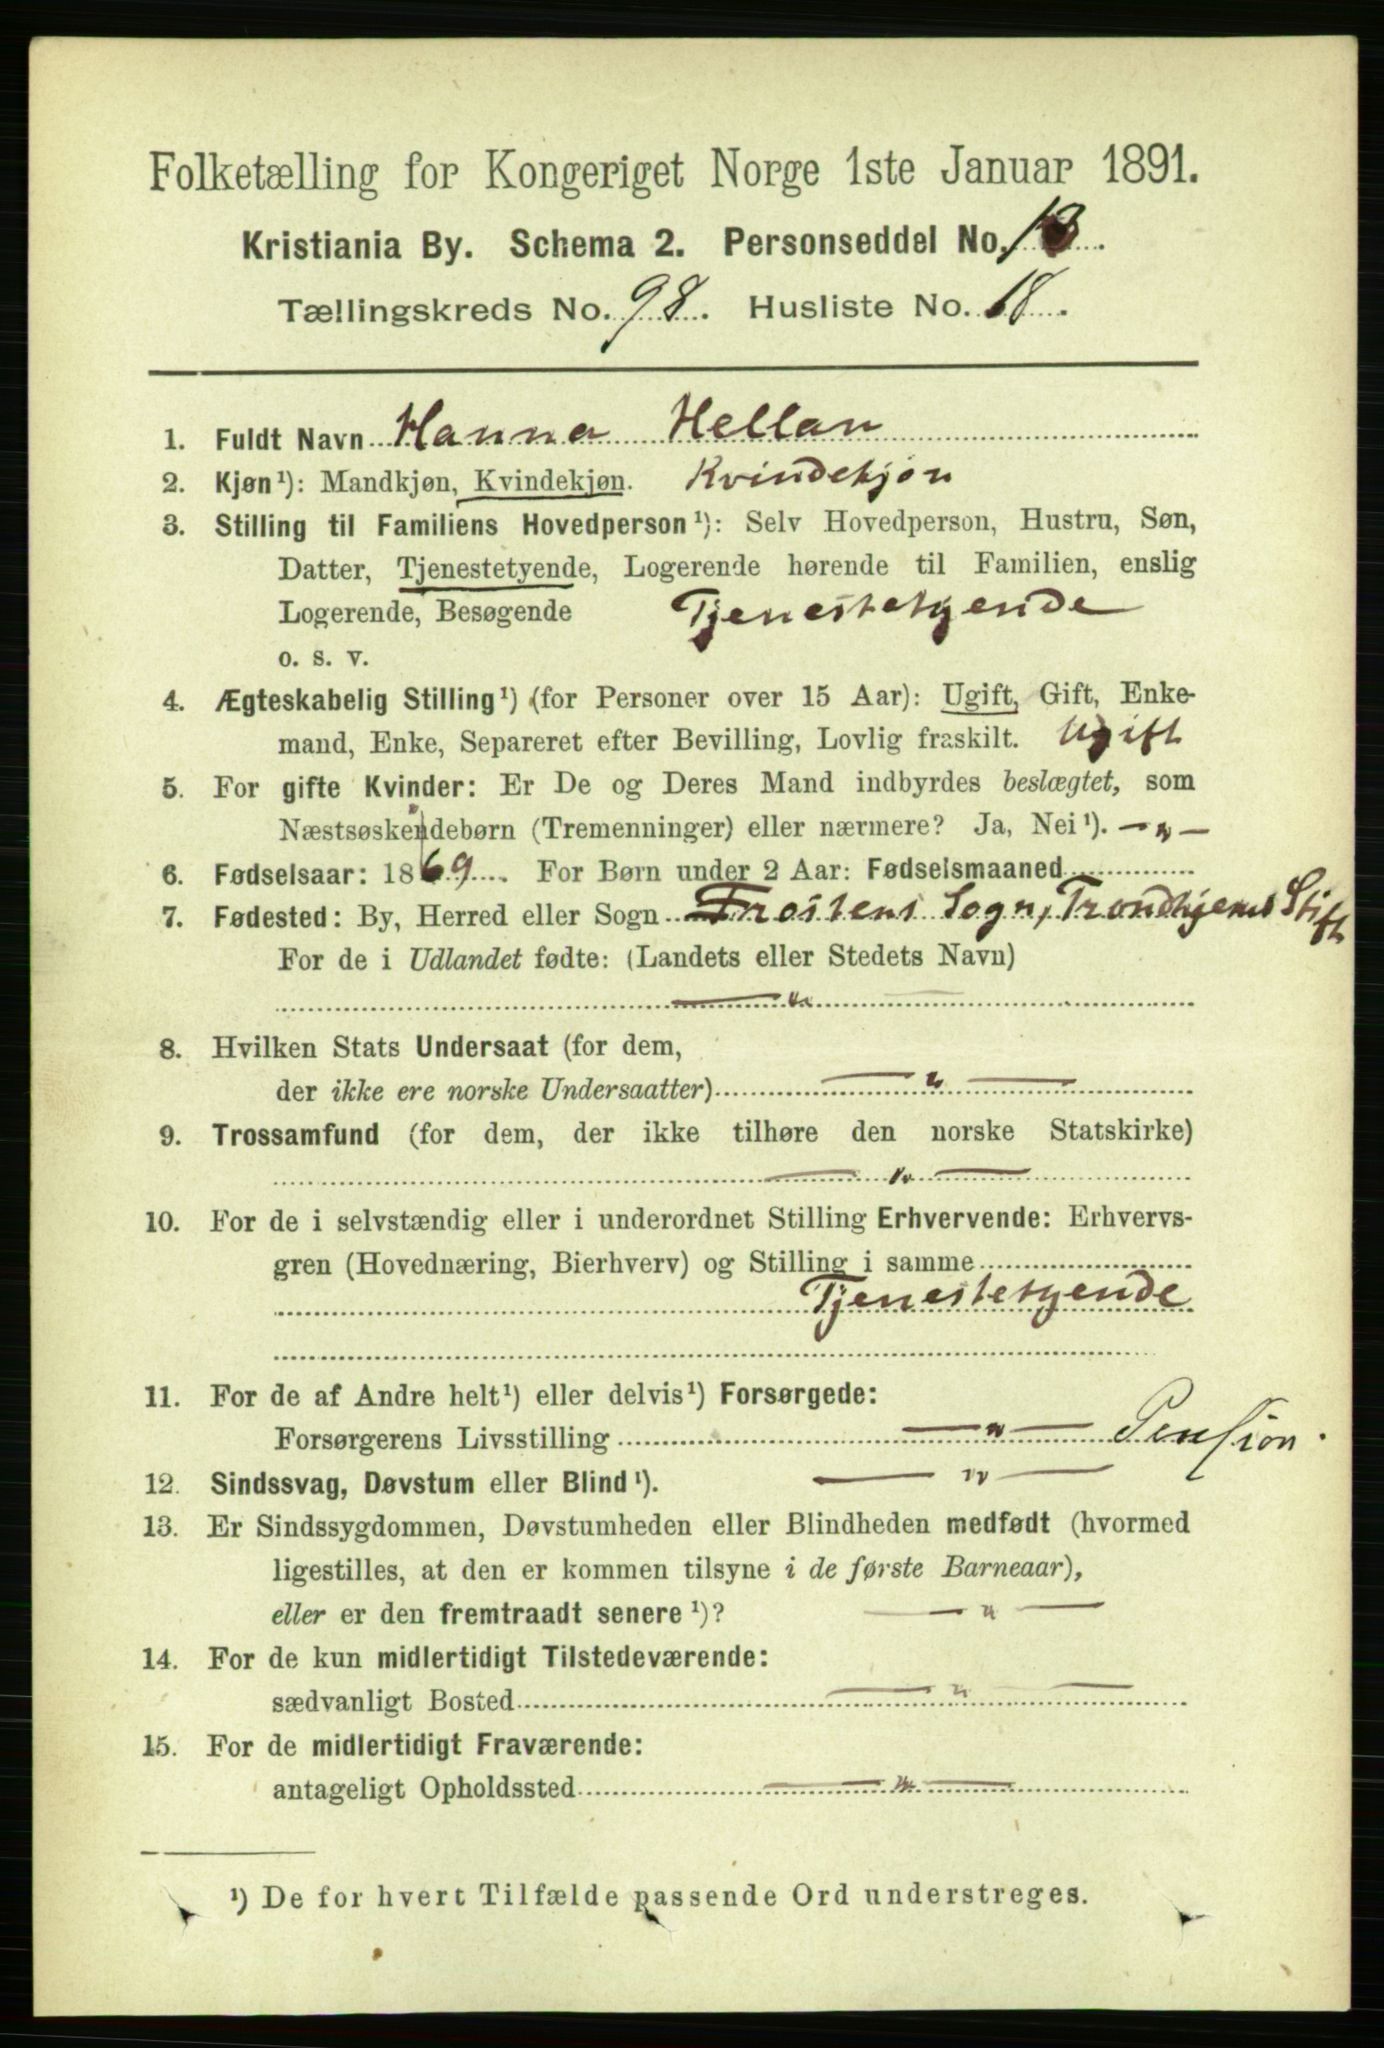 Folketælling for Kongeriget Norge 1ste Januar 1891.
Kristiania By. Schema 2. Personseddel No. 13.
Tællingskreds No. 98. Husliste No. 18.
1. Fuldt Navn Hanna Hellan
2. Kjøn¹): Mandkjøn, Kvindekjøn. Kvindekjøn
3. Stilling til Familiens Hovedperson¹): Selv Hovedperson, Hustru, Søn,
Datter, Tjenestetyende, Logerende hørende til Familien, enslig
Logerende, Besøgende Tjenestetyende
o. s. v.
4. Ægteskabelig Stilling¹) (for Personer over 15 Aar): Ugift, Gift, Enke-
mand, Enke, Separeret efter Bevilling, Lovlig fraskilt. Ugift
5. For gifte Kvinder: Er De og Deres Mand indbyrdes beslægtet, som
Næstsøskendebørn (Tremenninger) eller nærmere? Ja, Nei¹). — „ —
6. Fødselsaar: 1869. For Børn under 2 Aar: Fødselsmaaned
7. Fødested: By, Herred eller Sogn Frostens Sogn, Trondhjems Stift
For de i Udlandet fødte: (Landets eller Stedets Navn)
— „
8. Hvilken Stats Undersaat (for dem,
der ikke ere norske Undersaatter) — „ —
9. Trossamfund (for dem, der ikke tilhøre den norske Statskirke)
— „ —
10. For de i selvstændig eller i underordnet Stilling Erhvervende: Erhvervs-
gren (Hovednæring, Bierhverv) og Stilling i samme
Tjenestetyende
11. For de af Andre helt¹) eller delvis¹) Forsørgede:
Forsørgerens Livsstilling — „ — Pension.
12. Sindssvag, Døvstum eller Blind¹). — „ —
13. Er Sindssygdommen, Døvstumheden eller Blindheden medfødt (hvormed
ligestilles, at den er kommen tilsyne i de første Barneaar),
eller er den fremtraadt senere¹)? — „ —
14. For de kun midlertidigt Tilstedeværende:
sædvanligt Bosted — „ —
15. For de midlertidigt Fraværende:
antageligt Opholdssted — „ —
¹) De for hvert Tilfælde passende Ord understreges.